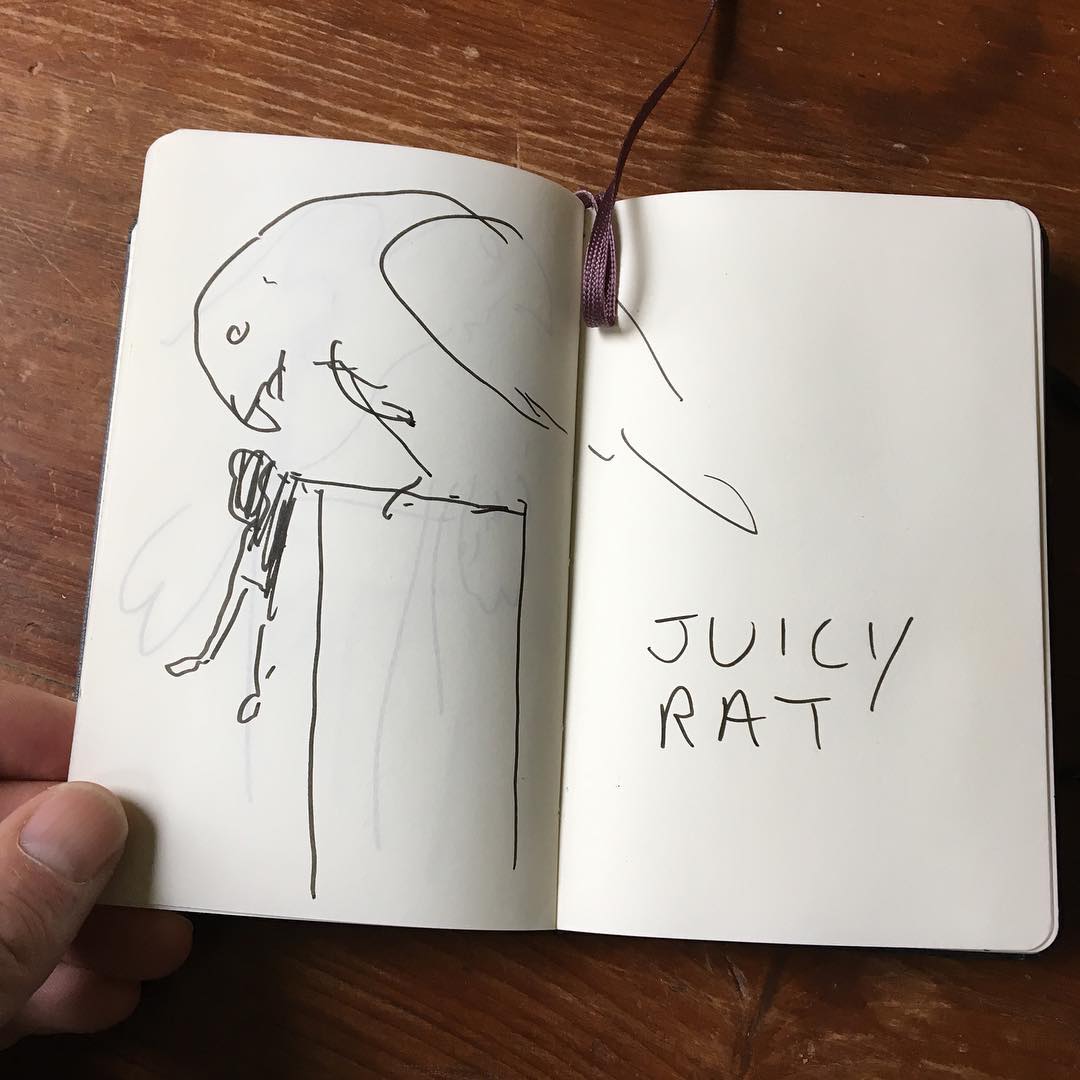 JUICY
RAT